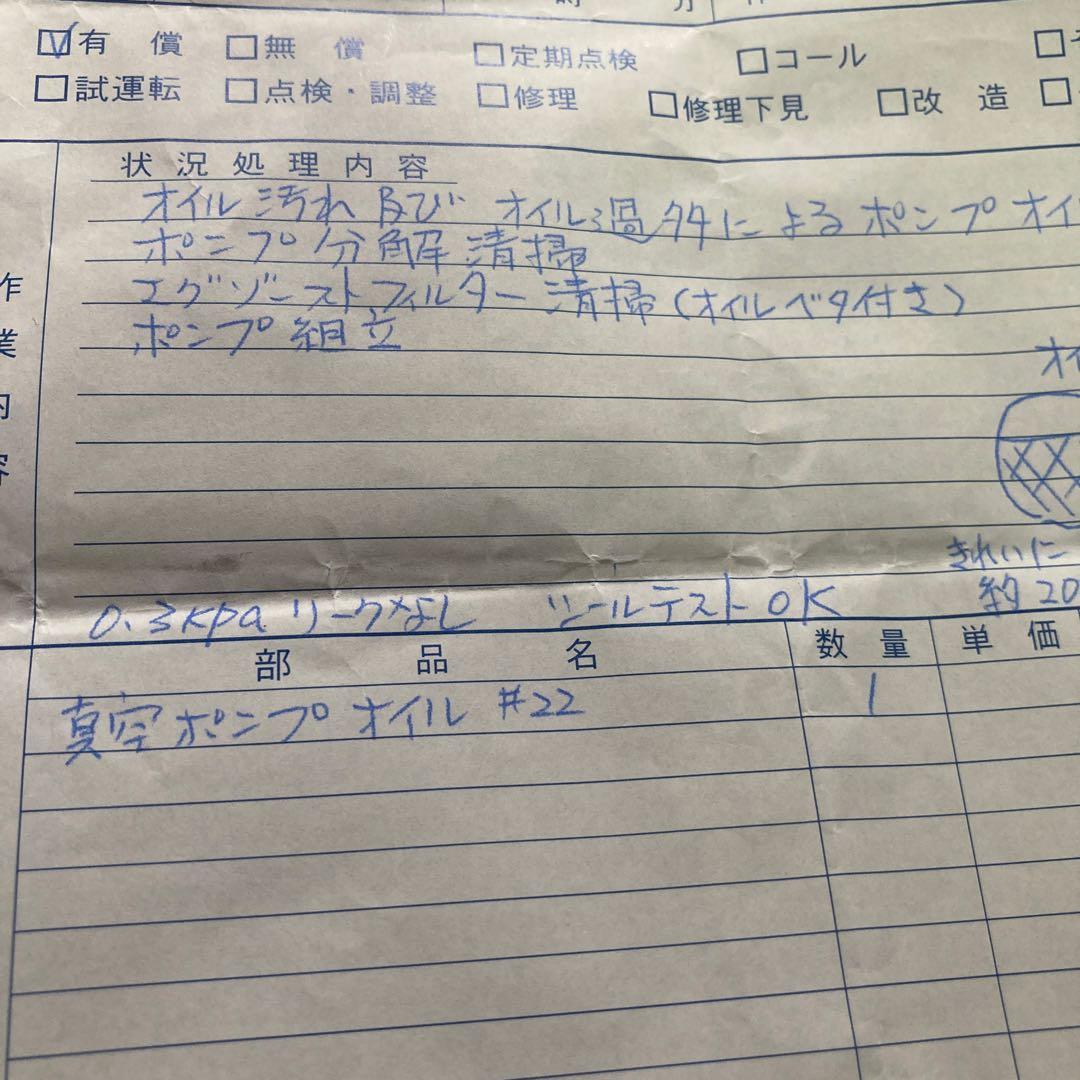 ☑有 償 □無 償 □定期点検 □コール
□試運転 □点検・調整 □修理 □修理下見 □改 造
状 況 処 理 内 容
オイル汚れ及び オイル過多によるポンプオイ
ポンプ分解清掃
エグゾーストフィルター清掃(オイルベタ付き)
ポンプ組立
作
業
内
容
オイ
きれいに
約20
0.3kpa リークなし シールテストOK
部 品 名 数 量 単 価
真空ポンプオイル #22 1